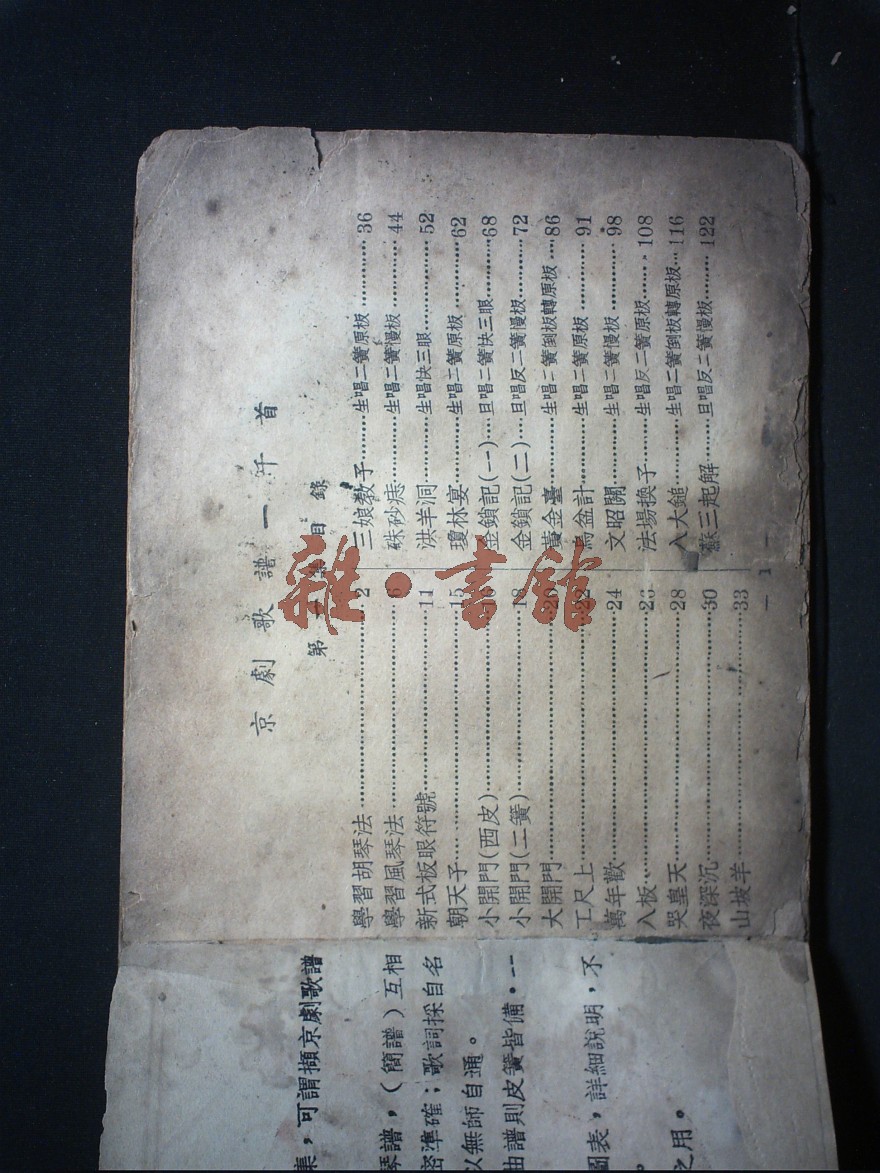 京劇歌譜一千首
第 目錄
學習胡琴法 2
學習風琴法 6
新式板眼符號 11
朝天子 15
小開門(西皮) 16
小開門(二簧) 18
大開門 20
工尺上 22
萬年歡 24
八板 26
哭皇天 28
夜深沉 30
山坡羊 33
三娘教子 生唱二簧原板 36
硃砂痣 生唱二簧慢板 44
洪羊洞 生唱快三眼 52
瓊林宴 生唱二簧原板 62
金鎖記(一) 旦唱二簧快三眼 68
金鎖記(二) 旦唱反二簧慢板 72
黃金臺 生唱二簧倒板轉原板 86
烏盆計 生唱二簧原板 91
文昭關 生唱二簧慢板 98
法場換子 生唱反二簧原板 108
八大鎚 生唱二簧倒板轉原板 116
蘇三起解 旦唱反二簧慢板 122
— 1 —
集，可謂擷京劇歌譜
琴譜，(簡譜)互相
密準確；歌詞採自名
以無師自通。
曲譜則皮簧皆備。
圖表，詳細說明，不
之用。
書館